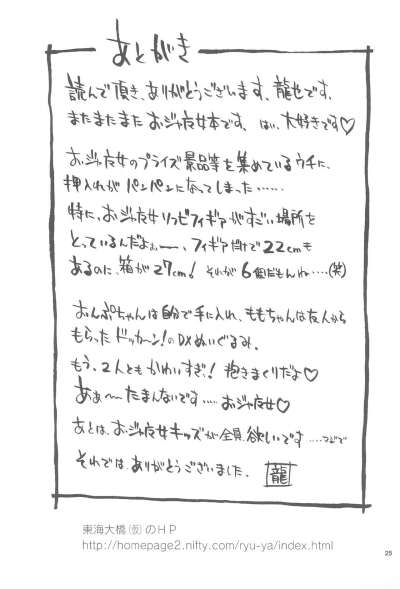 あとがき
読んで頂き、ありがとうございます、龍也です。
またまたまた おジャ魔女本です、はい、大好きです♡
おジャ魔女のプライズ景品等を集めているウチに、
押入れがパンパンになってしまった……
特に、おジャ魔女リフビフィギアがすごい場所を
とっているんだよぉー、フィギア自体で22cmも
あるのに、箱が27cm! それが6個だもんね…(笑)
おんぷちゃんは自分で手に入れ、ももちゃんは友人から
もらったドッカ~ン!のDXぬいぐるみ。
もう、2人ともかわいすぎ! 抱きまくりだよ♡
あぁ~たまんないです……おジャ魔女♡
あとは、おジャ魔女キッズが全員欲しいです
それでは、ありがとうございました。 龍
東海大橋(仮)のHP
http://homepage2.nifty.com/ryu-ya/index.html
29